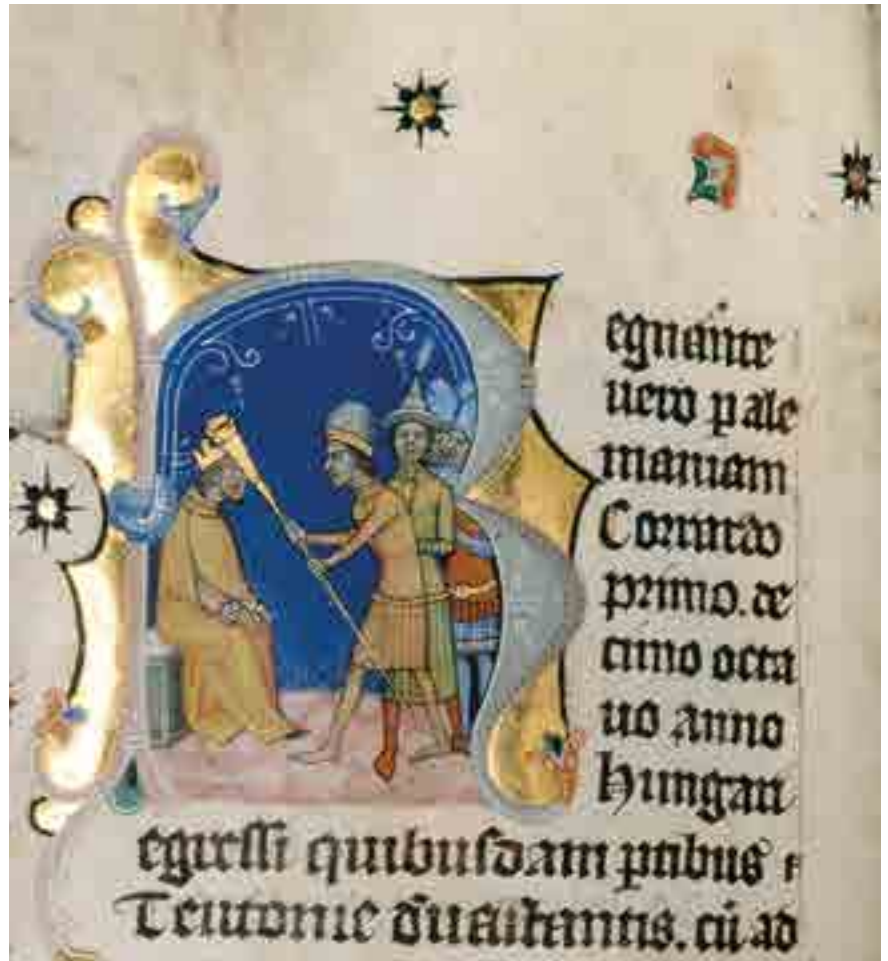 R
egnante
uero p ale
maniam
Corrardo
primo. de
cimo octa
uo anno
Hungari
egressi quibusdam ptibus
Teutonie deuastantis. cu ad